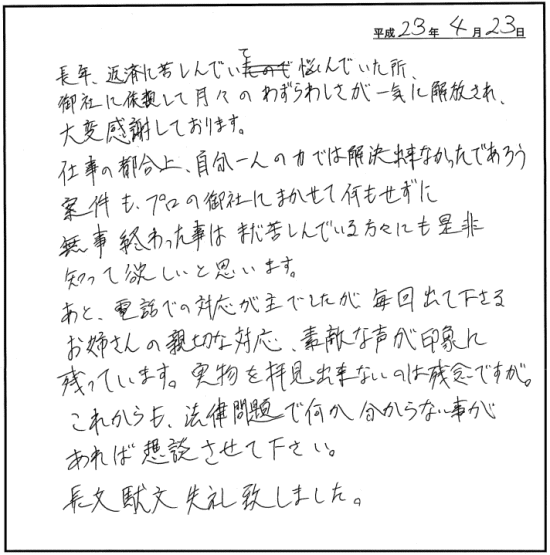 平成23年4月23日
長年、返済に苦しんでいて悩んでいた所、
御社に依頼して月々のわずらわしさが一気に解放され、
大変感謝しております。
仕事の都合上、自分一人の力では解決出来なかったであろう
案件も、プロの御社にまかせて何もせずに
無事終わった事はまだ苦しんでいる方々にも是非
知って欲しいと思います。
あと、電話での対応が主でしたが毎回出て下さる
お姉さんの親切な対応、素敵な声が印象に
残っています。実物を拝見出来ないのは残念ですが。
これからも、法律問題で何か分からない事が
あれば想談させて下さい。
長文駄文失礼致しました。